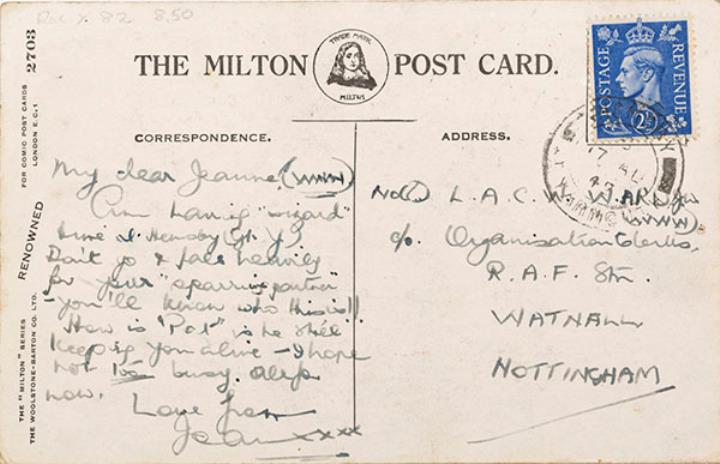 8.50
THE MILTON POST CARD.
TRADE MARK
MILTON
CORRESPONDENCE.
My dear Jeanne (WWW)
Am having "wizard"
time
Don't go & fall heavily
for your "sparring partner"
- you'll know who this is!!
How is "Pat" is he still
keeping you alive - I hope
not too busy.
now.
Love from
Jean xxxx
ADDRESS.
L.A.C.W. WARD
(WWW)
c/o Organisation Clerks,
R.A.F. Stn.
WATNALL
NOTTINGHAM
POSTAGE
REVENUE
2½
17 AU
THE "MILTON" SERIES
THE WOOLSTONE-BARTON CO. LTD.
RENOWNED
FOR COMIC POST CARDS
LONDON E.C.1
2703